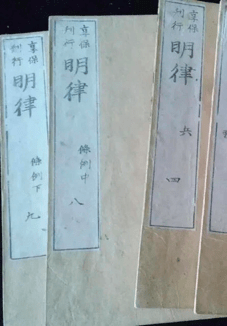 享保
刊行
明律
兵
四
享保
刊行
明律
條例中
八
享保
刊行
明律
條例下
九